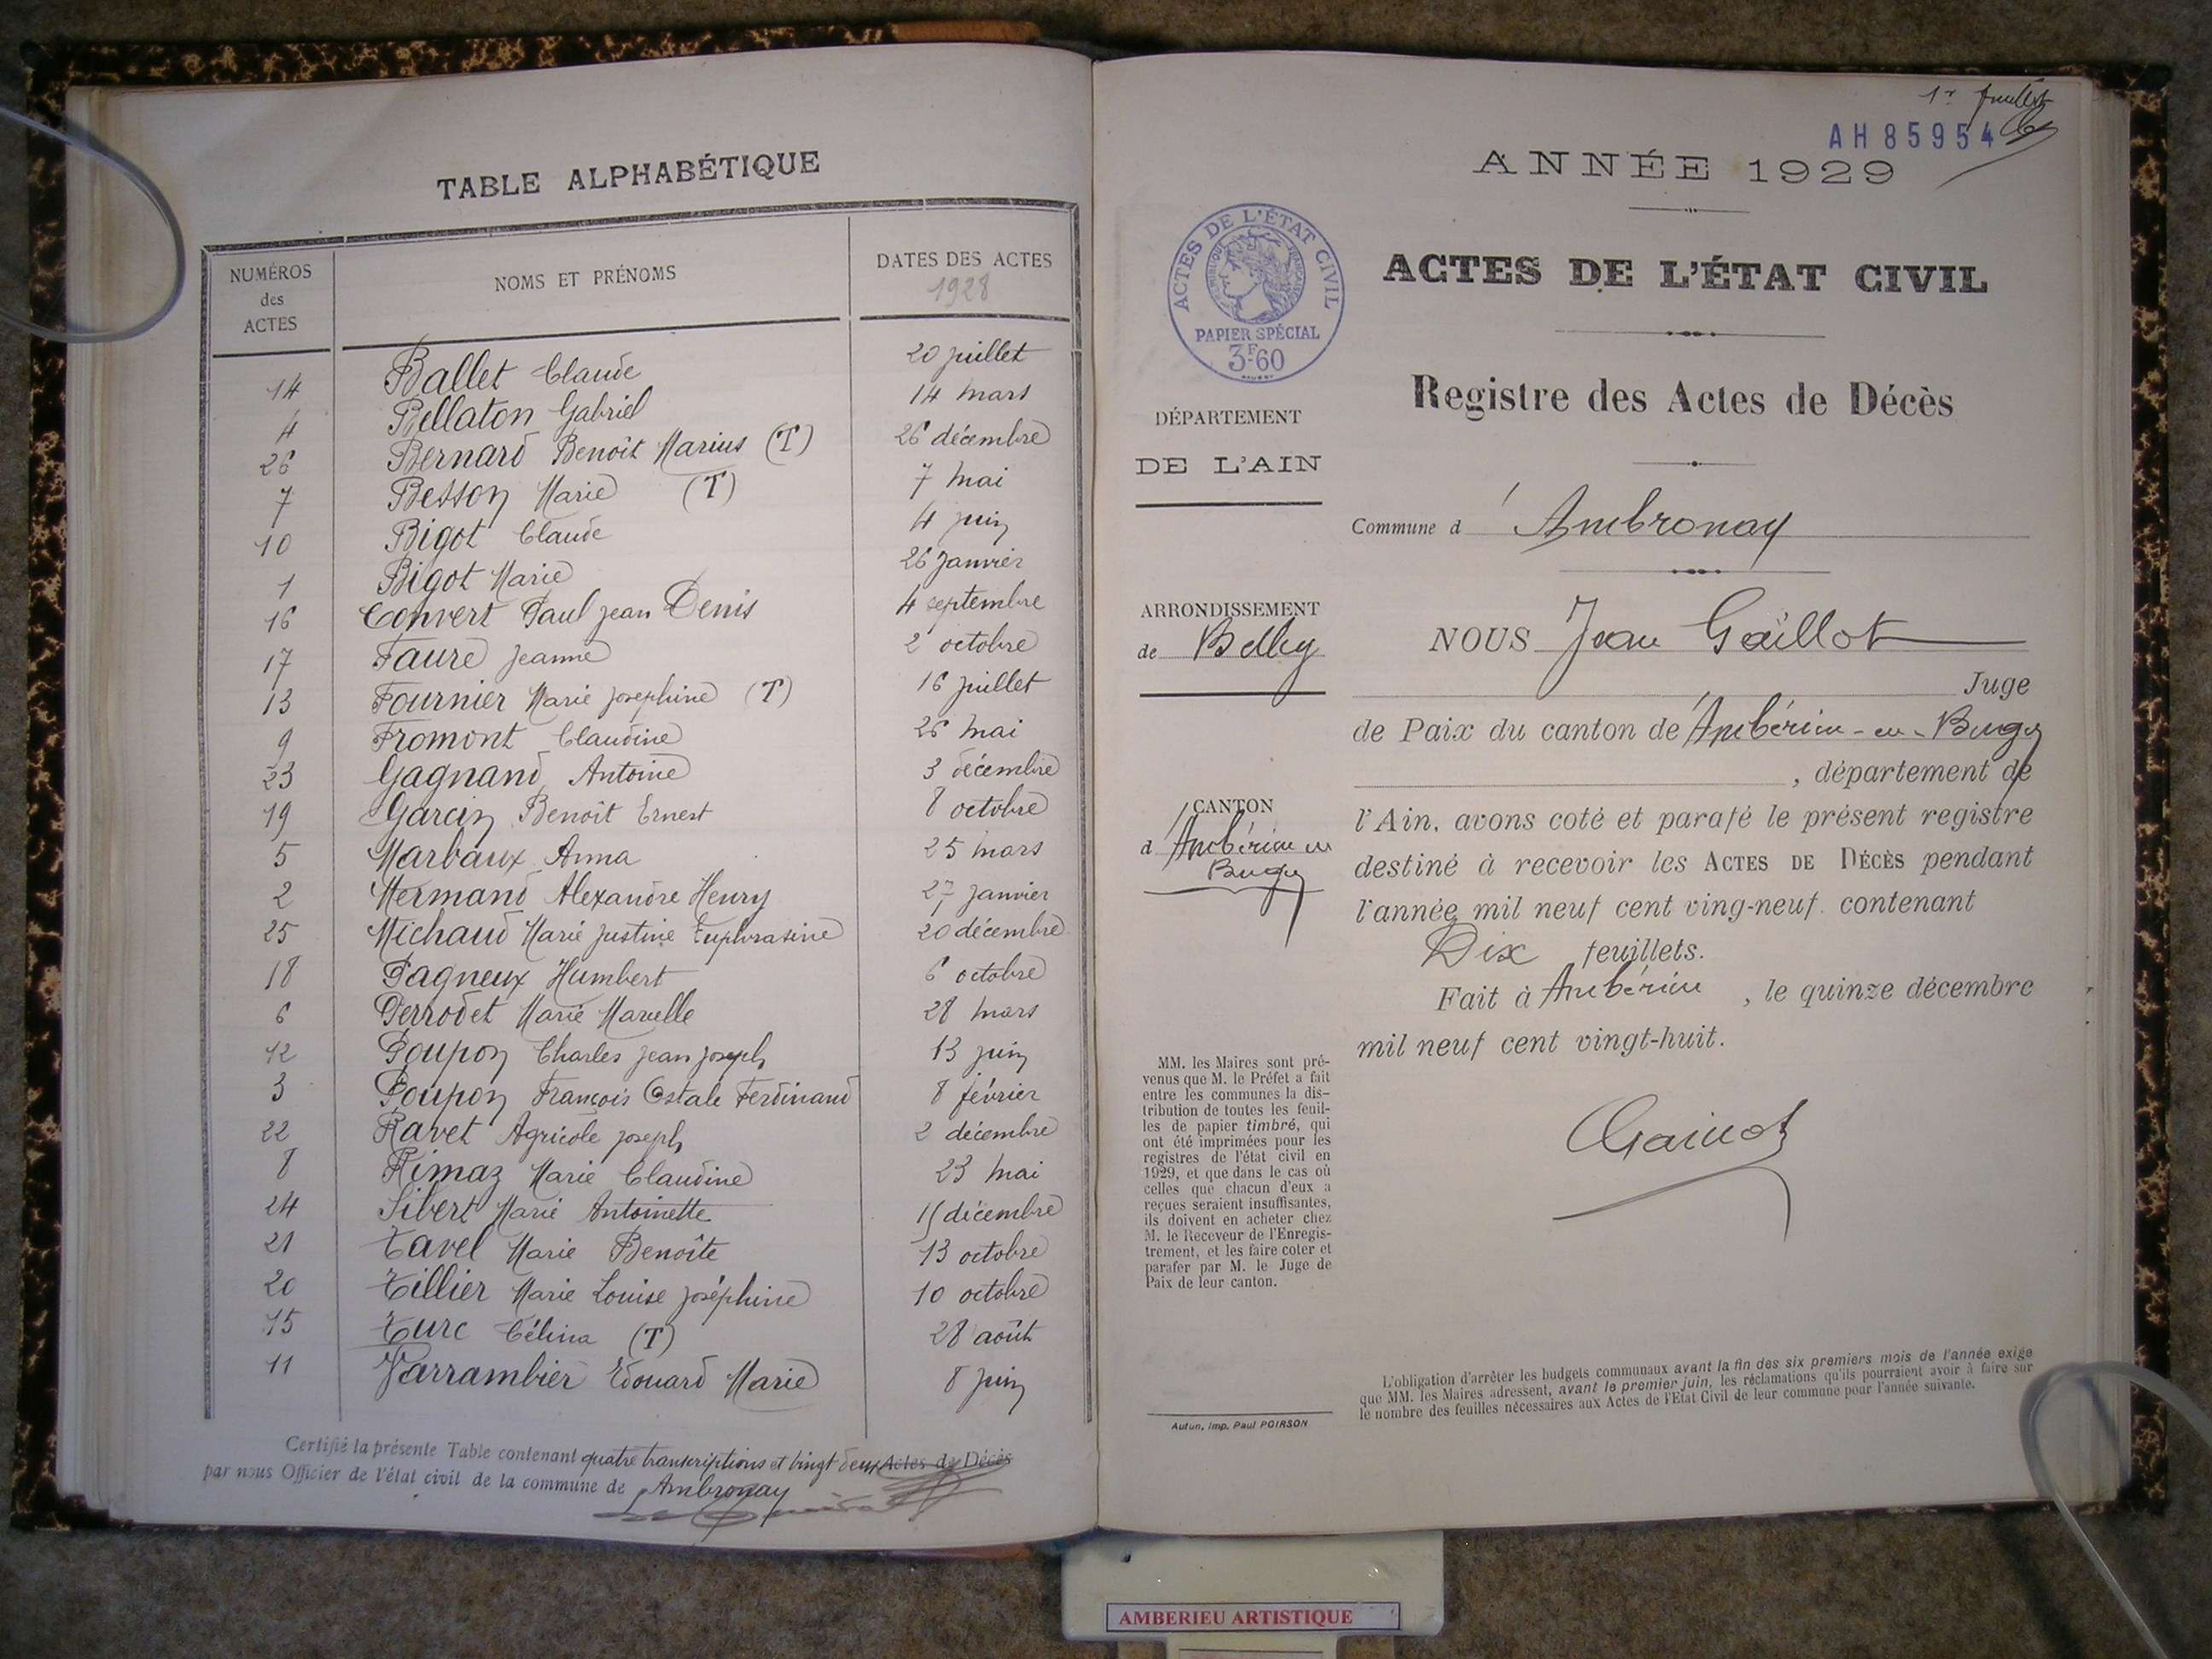 TABLE ALPHABÉTIQUE
NUMÉROS des ACTES NOMS ET PRÉNOMS DATES DES ACTES 1928
14 Ballet Claude 20 juillet
4 Bellaton Gabriel 14 mars
26 Bernard Benoît Marius (T) 26 décembre
7 Besson Marie (T) 7 mai
10 Bigot Claude 4 juin
1 Bigot Marie 26 Janvier
16 Convert Paul Jean Denis 4 septembre
17 Faure Jeanne 2 octobre
13 Fournier Marie Joséphine (T) 16 juillet
9 Fromont Claudine 26 mai
23 Gagnand Antoine 3 décembre
19 Garcin Benoît Ernest 8 octobre
5 Marbaux Anna 25 mars
2 Mermand Alexandre Henry 27 janvier
25 Michaud Marie Justine Euphrasine 20 décembre
18 Pagneux Humbert 6 octobre
6 Perrodet Marie 28 mars
12 Poupon Charles Jean Joseph 13 juin
3 Poupon François Ferdinand 8 février
22 Ravet Agricole Joseph 2 décembre
8 Rimaz Marie Claudine 23 mai
24 Sibert Marie Antoinette 15 décembre
21 Tavel Marie Benoîte 13 octobre
20 Tillier Marie Louise Joséphine 10 octobre
15 Turc Célina (T) 28 août
11 Varrambier Edouard Marie 8 juin
Certifié la présente Table contenant quatre transcriptions et vingt deux Actes de Décès
par nous Officier de l'état civil de la commune de Ambronay
1er feuillet
AH 85954
ANNÉE 1929
ACTES DE L'ÉTAT CIVIL
RÉPUBLIQUE FRANÇAISE
PAPIER SPÉCIAL
3F60
ACTES DE L'ÉTAT CIVIL
Registre des Actes de Décès
DÉPARTEMENT
DE L'AIN
Commune d'Ambronay
ARRONDISSEMENT
de Belley
CANTON
d'Ambérieu en
Bugey
NOUS Jean Gaillot
Juge
de Paix du canton de Ambérieu-en-Bugey
, département de
l'Ain, avons coté et parafé le présent registre
destiné à recevoir les ACTES DE DÉCÈS pendant
l'année mil neuf cent ving-neuf. contenant
Dix feuillets.
Fait à Ambérieu, le quinze décembre
mil neuf cent vingt-huit.
MM. les Maires sont pré-
venus que M. le Préfet a fait
entre les communes la dis-
tribution de toutes les feuil-
les de papier timbré, qui
ont été imprimées pour les
registres de l'état civil en
1929, et que dans le cas où
celles que chacun d'eux a
reçues seraient insuffisantes,
ils doivent en acheter chez
M. le Receveur de l'Enregis-
trement, et les faire coter et
parafer par M. le Juge de
Paix de leur canton.
Autun, Imp. Paul POIRSON
L'obligation d'arrêter les budgets communaux avant la fin des six premiers mois de l'année exige
que MM. les Maires adressent, avant le premier juin, les réclamations qu'ils pourraient avoir à faire sur
le nombre des feuilles nécessaires aux Actes de l'Etat Civil de leur commune pour l'année suivante.
AMBERIEU ARTISTIQUE